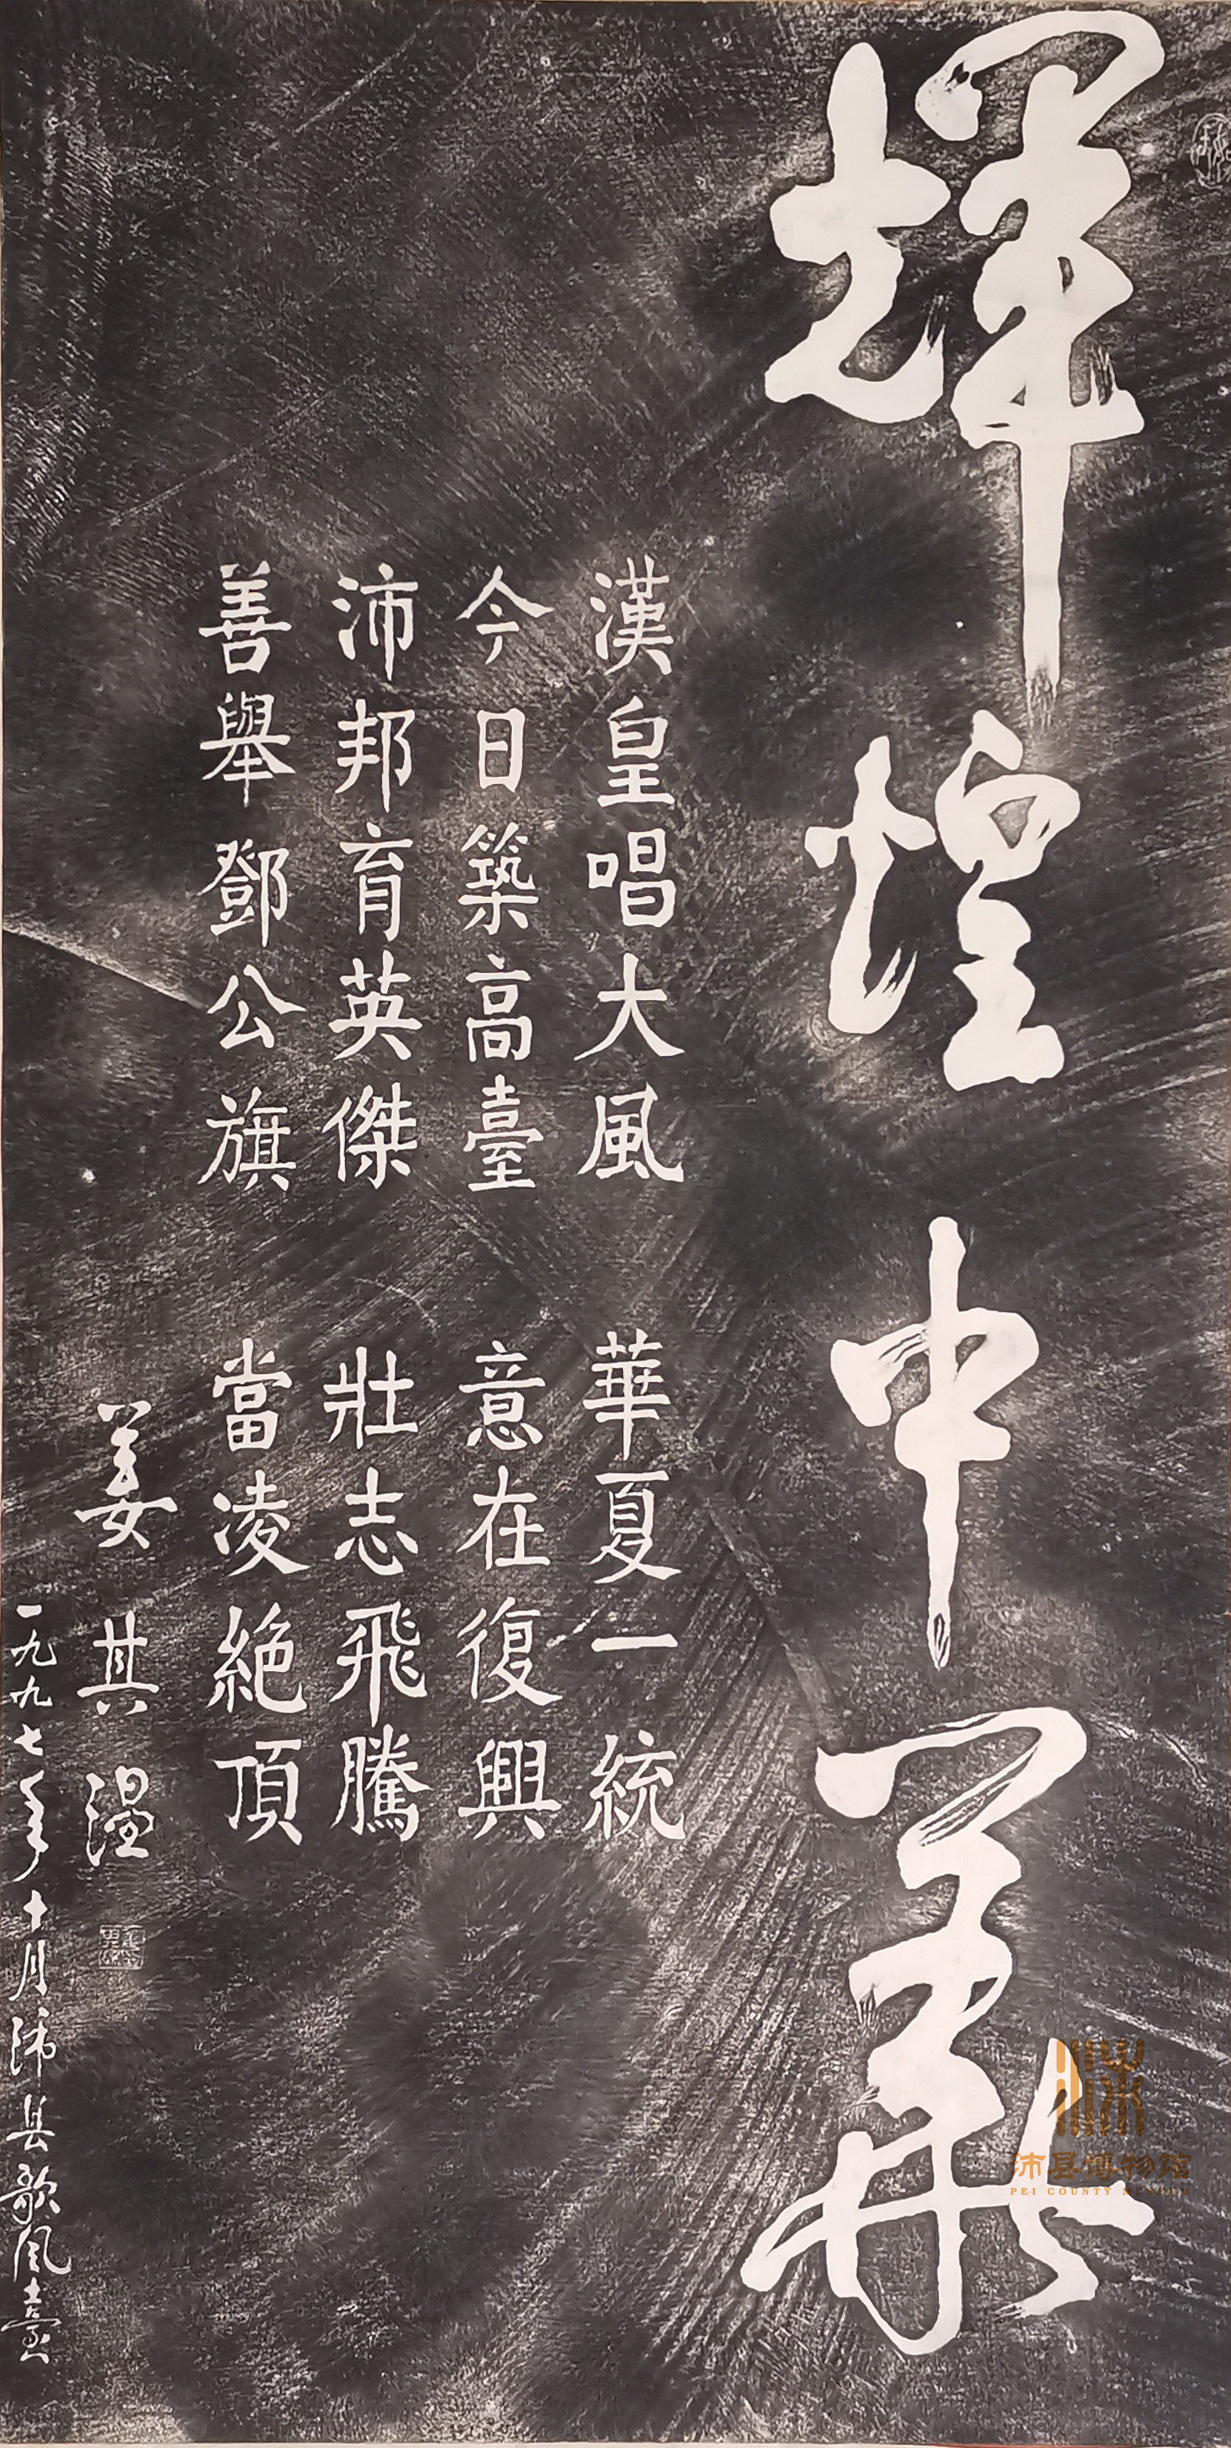 輝煌中華
漢皇唱大風 華夏一統
今日築高臺 意在復興
沛邦育英傑 壯志飛騰
善舉鄧公旗 當凌絶頂
姜其温
一九九七年十月沛县歌風臺
沛县博物馆
PEI COUNTY MUSEUM